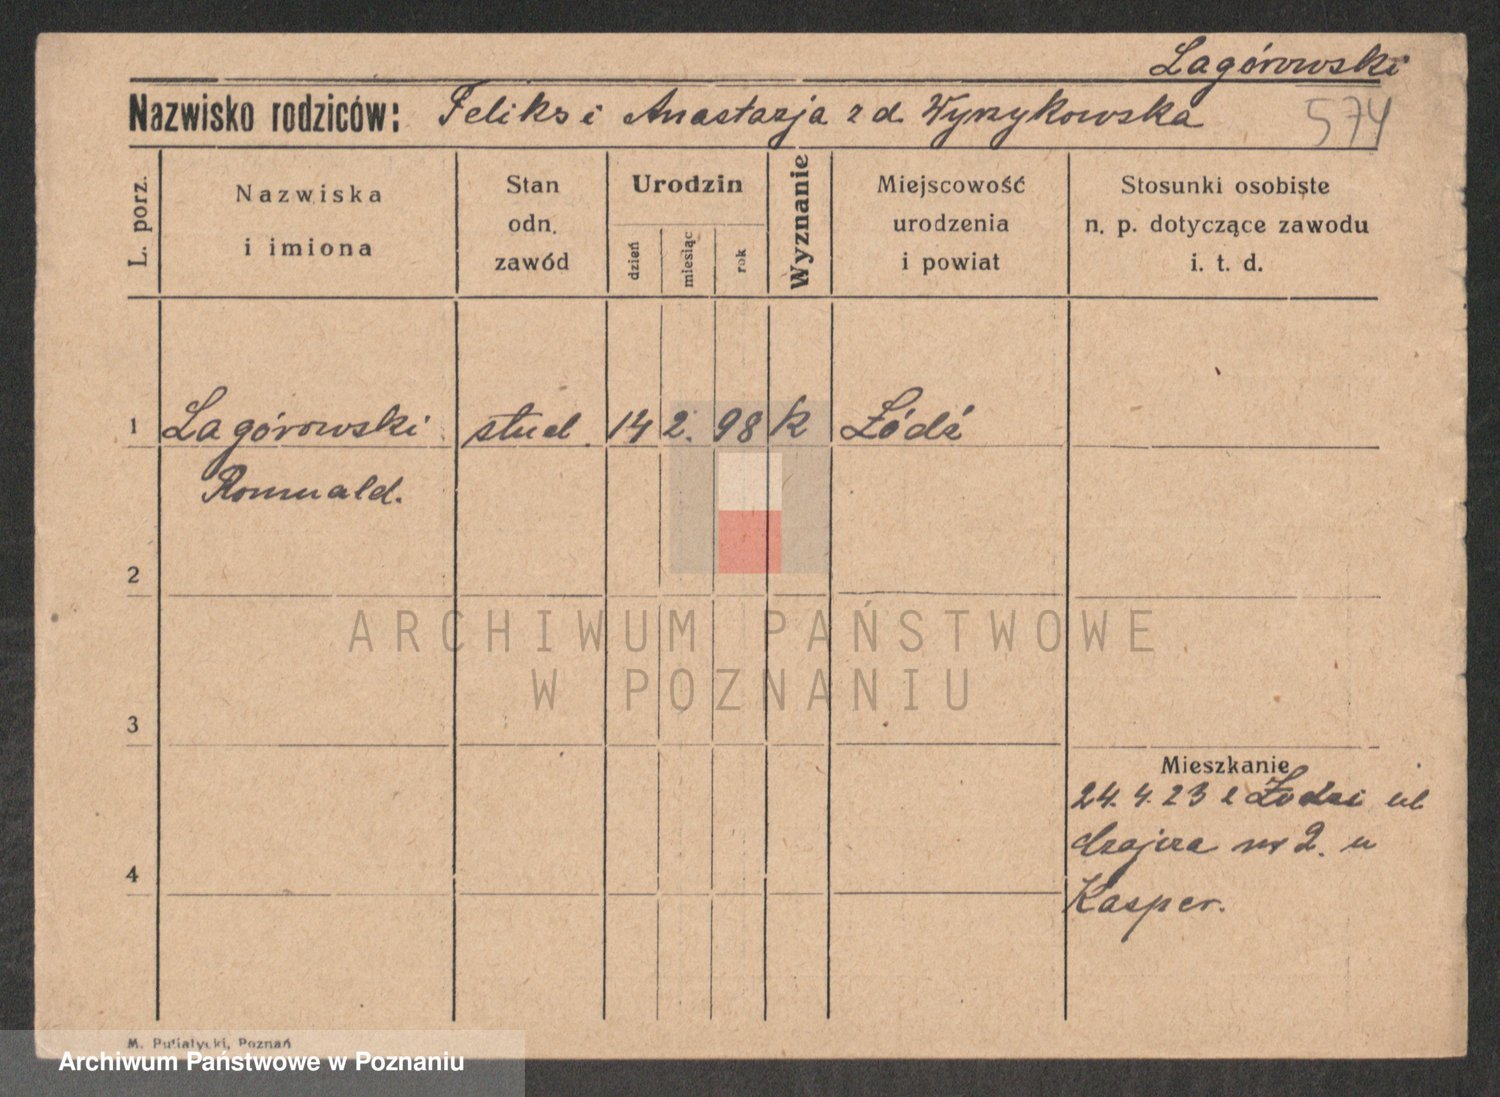 Lagórowski
Nazwisko rodziców: Feliks i Anastazja z d. Wyrzykowska 574
L. porz.
Nazwiska
i imiona
Stan
odn.
zawód
Urodzin
dzień
miesiąc
rok
Wyznanie
Miejscowość
urodzenia
i powiat
Stosunki osobiste
n. p. dotyczące zawodu
i. t. d.
1 Lagórowski stud. 14 2. 98 k Łódź
Romuald.
2
ARCHIWUM PAŃSTWOWE
W POZNANIU
3
Mieszkanie
24. 4. 23 z Łodzi ul
nr 2. u
4
Kasper.
M. Putiatycki, Poznań
Archiwum Państwowe w Poznaniu